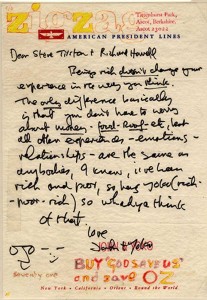 zigzag
Tittenhurst Park,
Ascot, Berkshire.
Ascot 23022
AMERICAN PRESIDENT LINES
Dear Steve Tilston & Richard Howell
Being rich doesn't change your
experience in the way you think.
The only difference basically
is that you don't have to worry
about money - food - roof - etc, but
all other experiences - emotions -
relationships - are the same as
anybodies, I know, i've been
rich and poor, so has yoko (rich -
- poor - rich) so whadya think
of that.
love
John & Yoko
Seventy one
BUY 'GOD SAVE US'
and save OZ
New York • California • Orient • Round the World